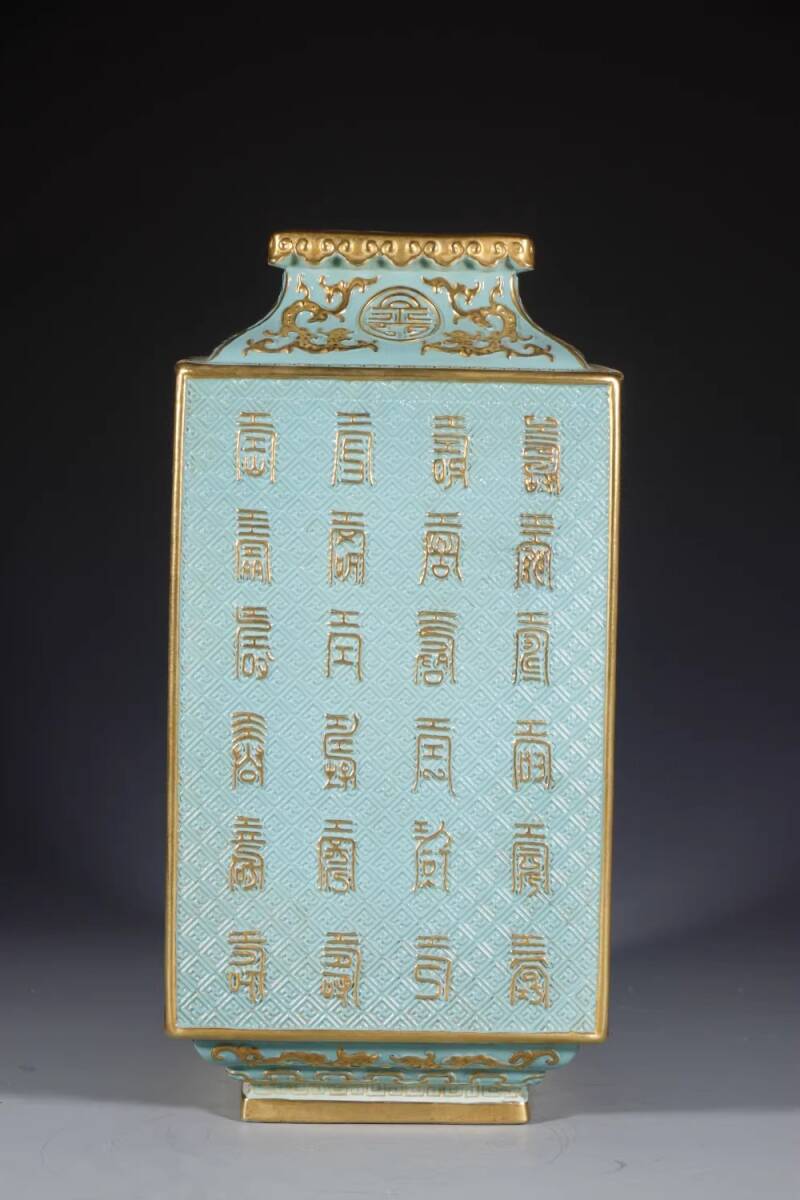 壽
壽壽壽壽壽壽
壽壽壽壽壽壽
壽壽壽壽壽壽
壽壽壽壽壽壽